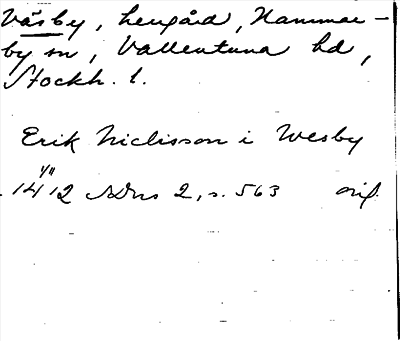 Väsby, hengård, Hammar-
by sn, Vallentuna hd,
Stockh. l.
Erik Niclisson i Wesby
1/11
1412 SDns 2, s. 563 orig.